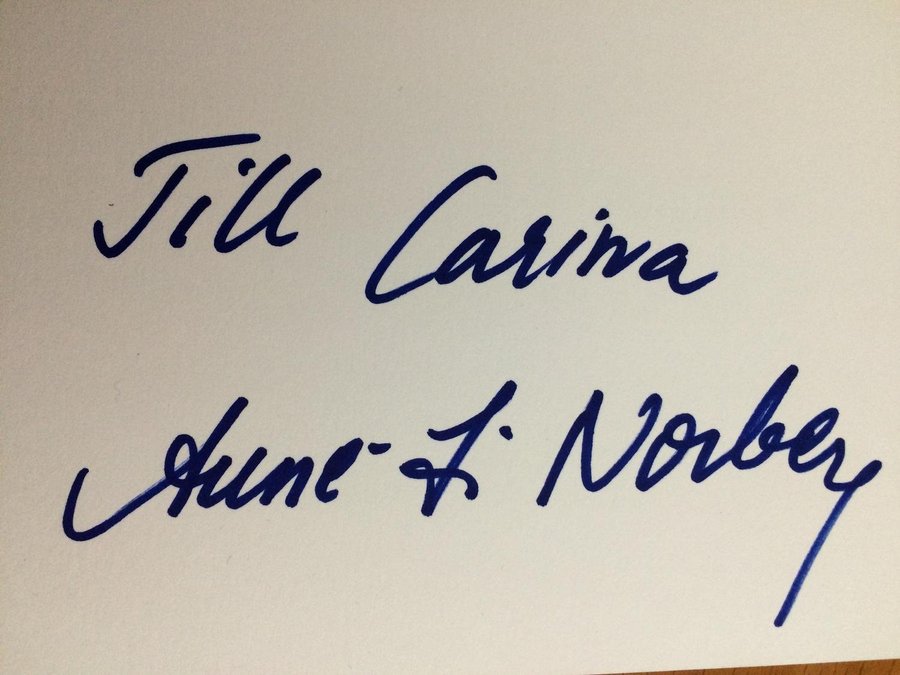 Till Carina
Anne-Li Norberg